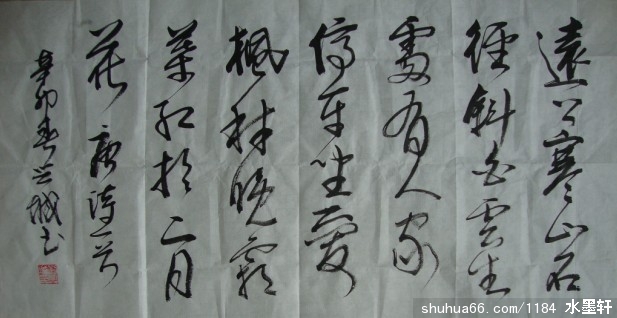 遠上寒山石
徑斜白雲生
處有人家
停车坐愛
楓林晚霜
葉红於二月
花 唐詩一首
辛卯春城书
shuhua66.com/1184 水墨轩